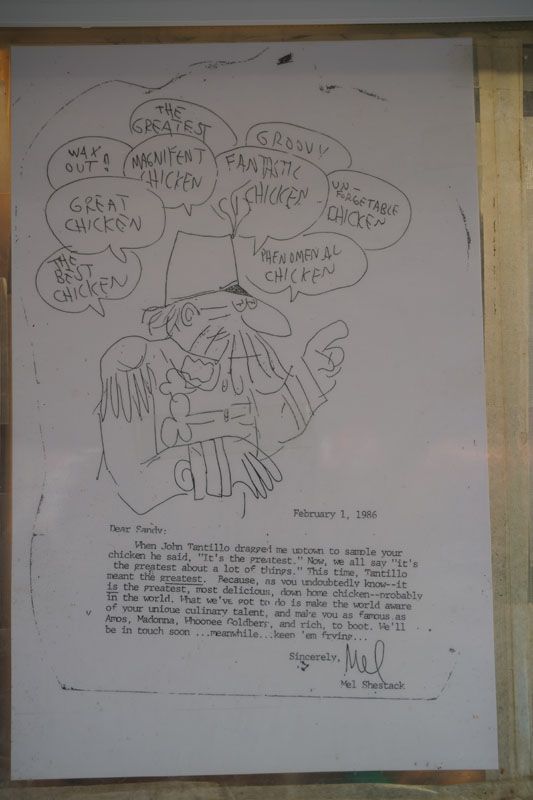 THE
GREATEST
GROOVY
WAX
OUT!
MAGNIFENT
CHICKEN
FANTASTIC
CHICKEN
UN-
FORGETABLE
CHICKEN
GREAT
CHICKEN
PHENOMENAL
CHICKEN
THE
BEST
CHICKEN
February 1, 1986
Dear Sandy:
When John Tantillo dragged me uptown to sample your
chicken he said, "It's the greatest." Now, we all say "it's
the greatest about a lot of things." This time, Tantillo
meant the greatest. Because, as you undoubtedly know--it
is the greatest, most delicious, down home chicken--probably
in the world. What we've got to do is make the world aware
of your unique culinary talent, and make you as famous as
Amos, Madonna, Whoopee Goldberg, and rich, to boot. We'll
be in touch soon ...meanwhile...keep 'em frying...
Sincerely,
Mel
Mel Shestack